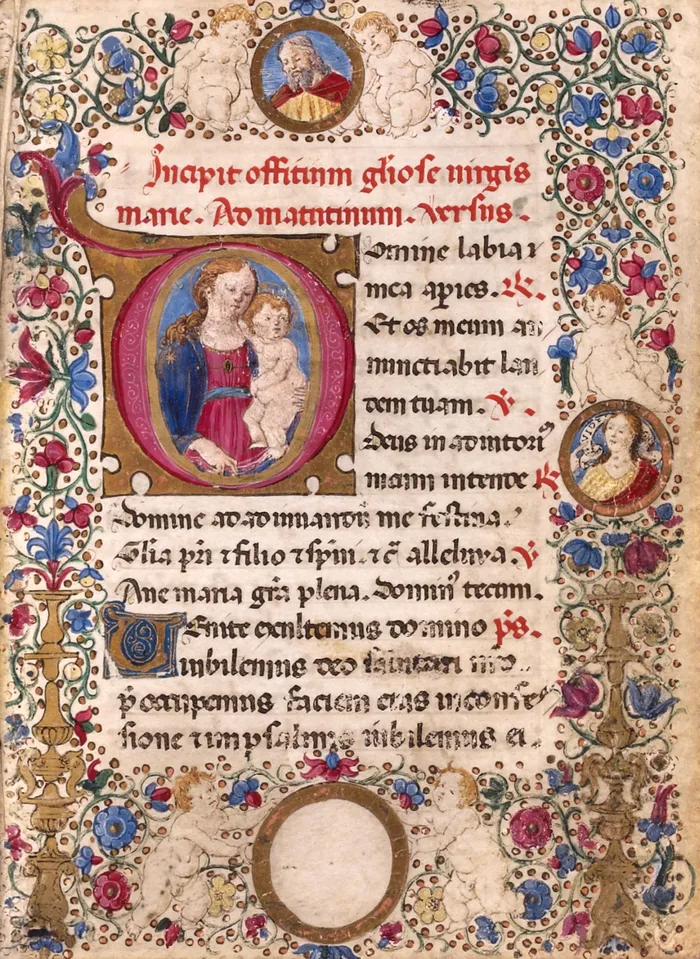 Incipit offitium gliose uirgis
marie. Ad matutinum. Versus.
Domine labia
mea apies. R.
Et os meum an
nuntiabit lau
dem tuam. V.
Deus in adiutoriū
meum intende R
Domine ad adiuuandū me festina.
Glia pri ⁊ filio ⁊ spiri. alleluya. V
Aue maria gra plena. domin' tecum.
Uenite exultemus domino ps.
iubilemus deo salutari nro.
p̄occupemus faciem eius in confes
sione ⁊ in psalmis iubilemus ei.